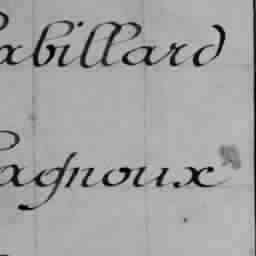 abillard
agnoux